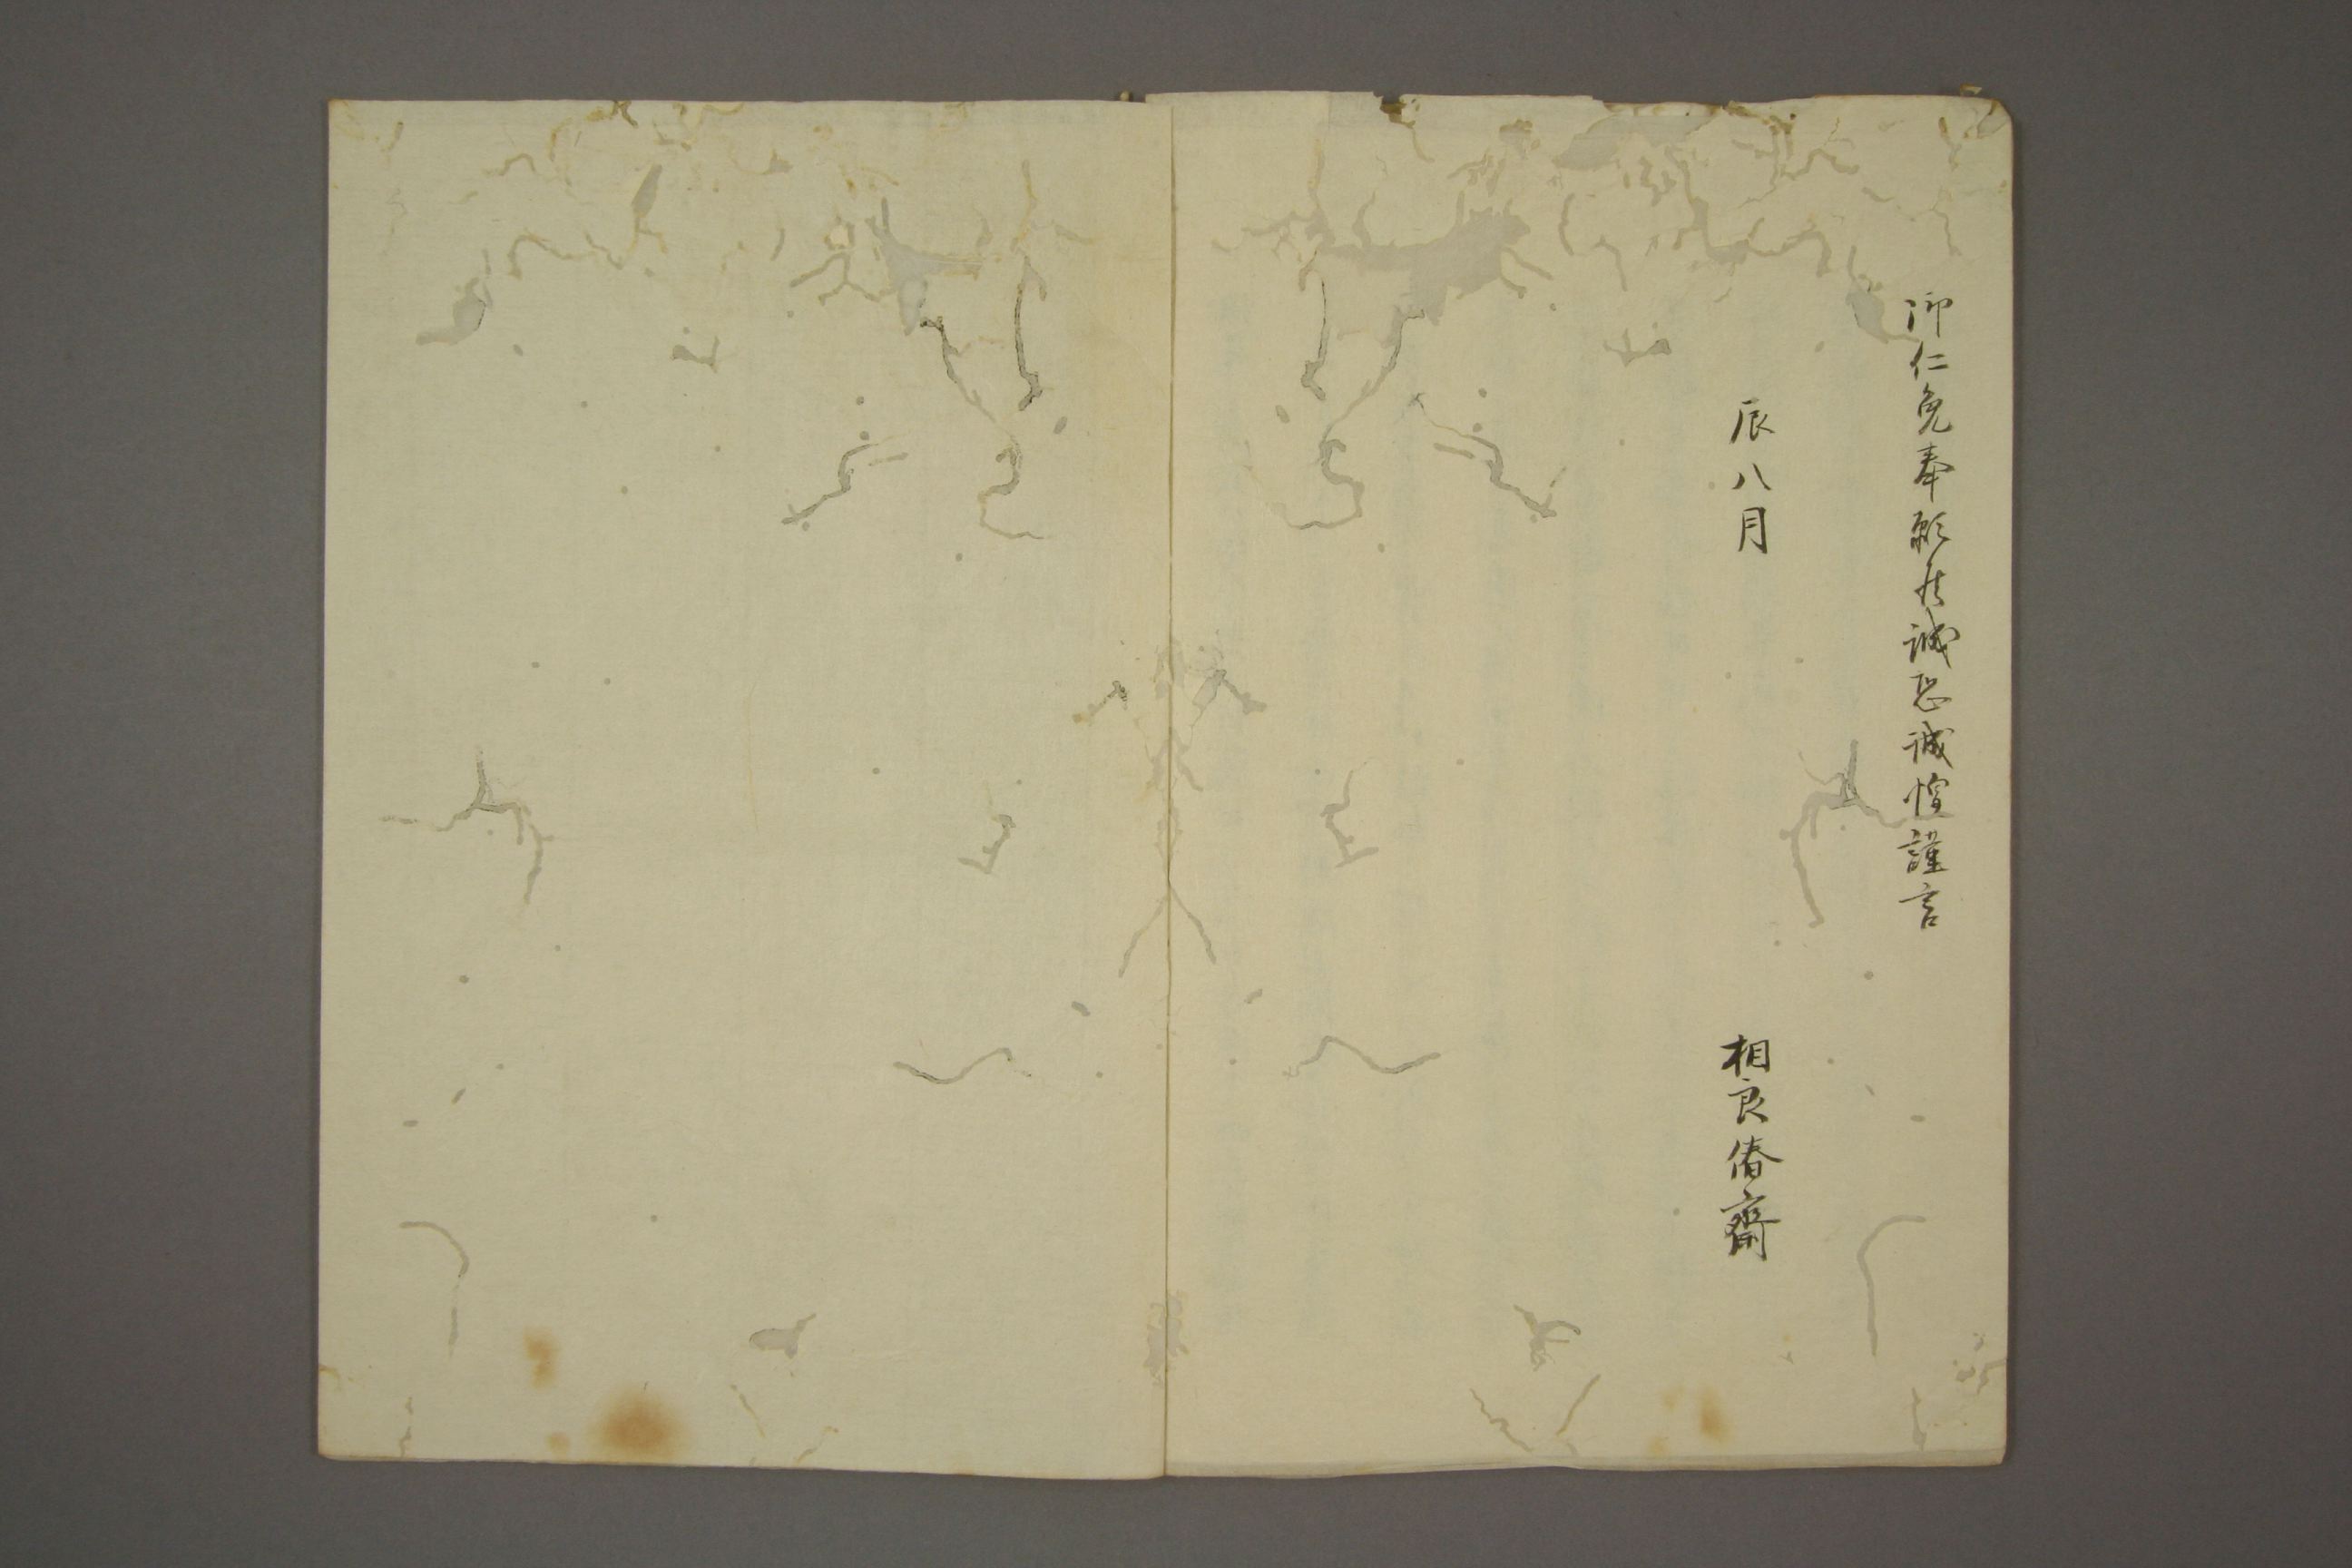 御仁免奉願候誠恐誠惶謹言
辰八月
相良偆齋